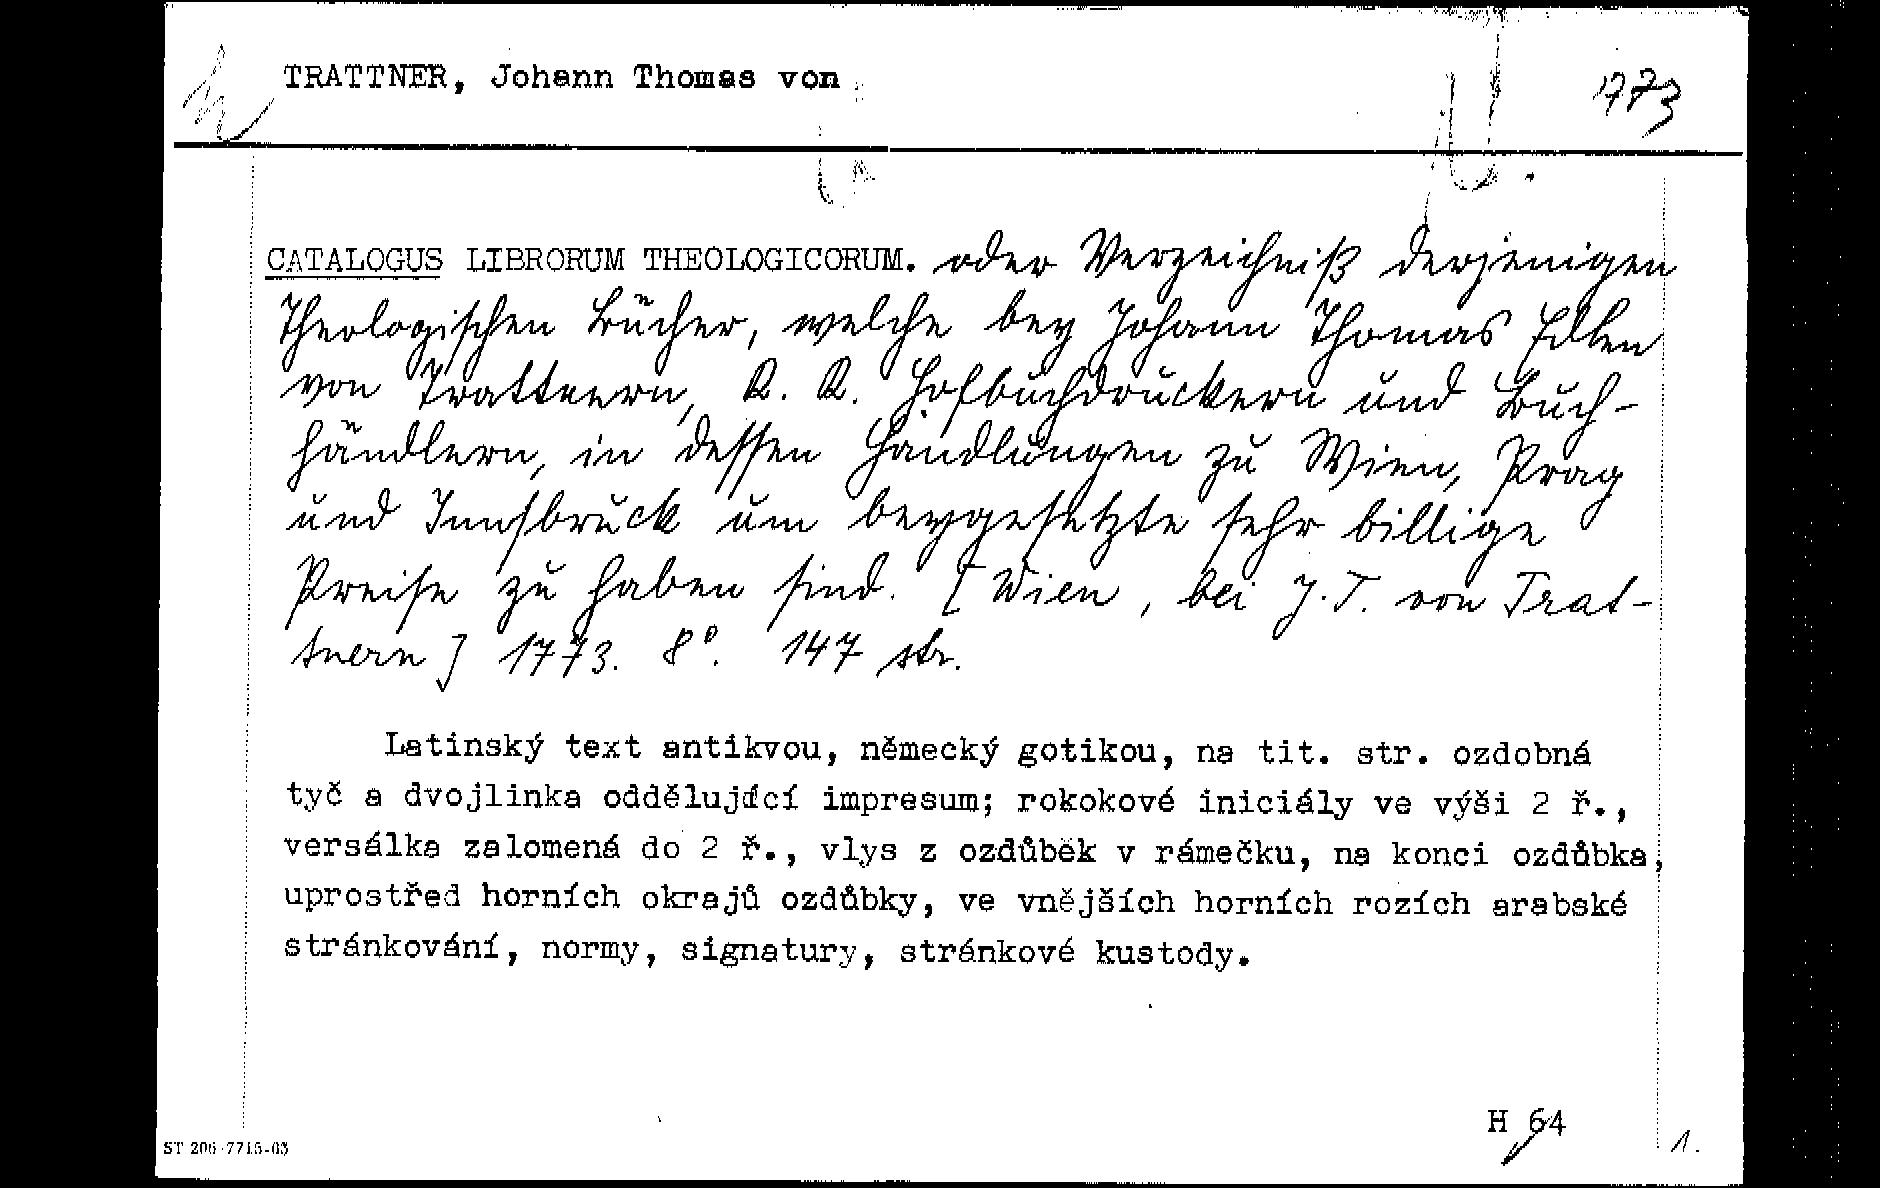 TRATTNER, Johann Thomas von
1773
CATALOGUS LIBRORUM THEOLOGICORUM. oder Verzeichniß derjenigen
Theologischen Bücher, welche bey Johann Thomas Edlen
von Trattnern, K. K. Hofbuchdruckern und Buch-
händlern, in dessen Handlungen zu Wien, Prag
und Innsbruck um beygesetzte sehr billige
Preise zu haben sind. [Wien, bei J. T. von Trat-
tnern] 1773. 8°. 147 str.
Latinský text antikvou, německý gotikou, na tit. str. ozdobná
tyč a dvojlinka oddělující impresum; rokokové iniciály ve výši 2 ř.,
versálka zalomená do 2 ř., vlys z ozdůbek v rámečku, na konci ozdůbka,
uprostřed horních okrajů ozdůbky, ve vnějších horních rozích arabské
stránkování, normy, signatury, stránkové kustody.
H 64
1.
ST 206-7715-63